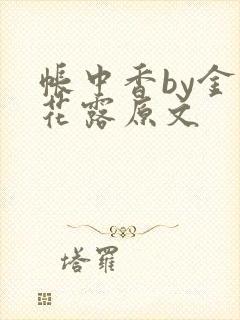 帐中香by金
花露原文
塔罗